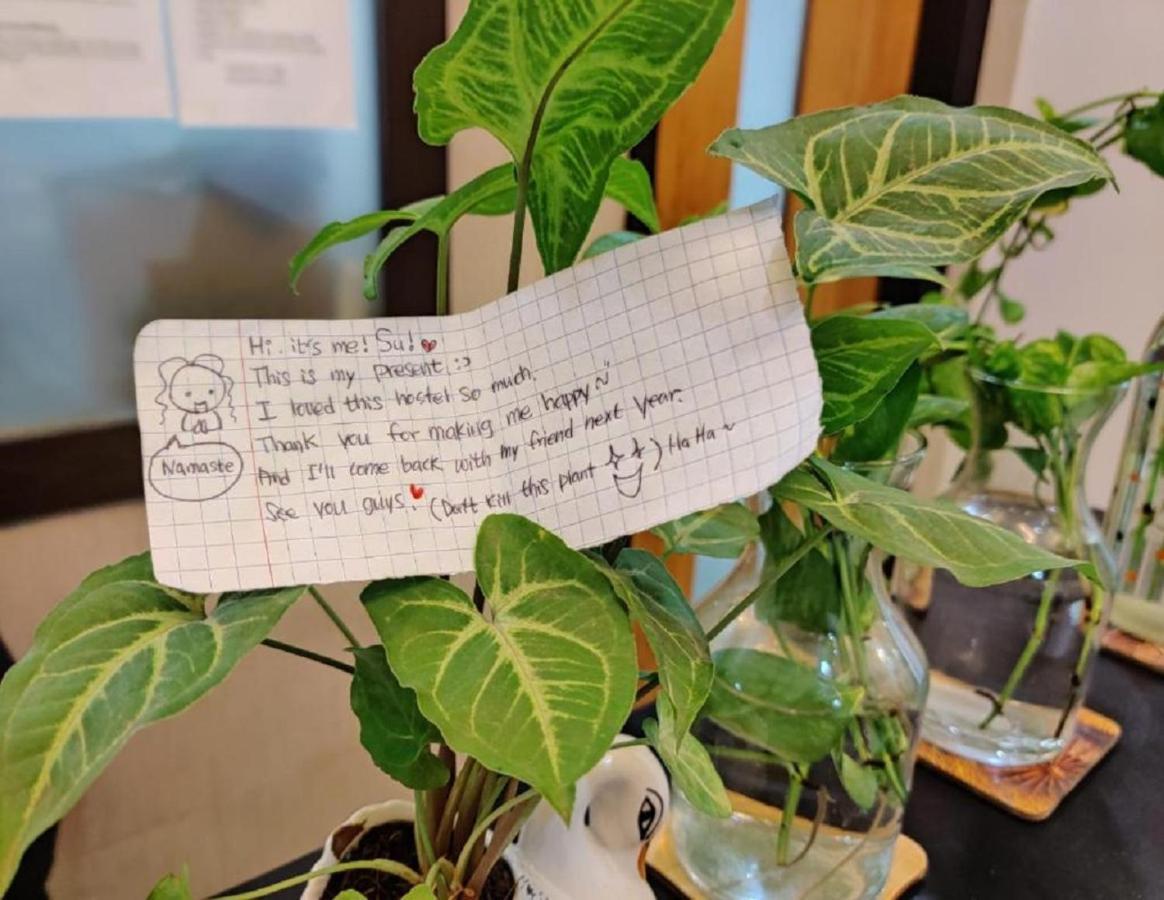 Hi. it's me! Su! ♥
This is my present :)
I loved this hostel so much.
Thank you for making me happy ~
And I'll come back with my friend next year.
See you guys! (Don't kill this plant ) Ha Ha ~
Namaste